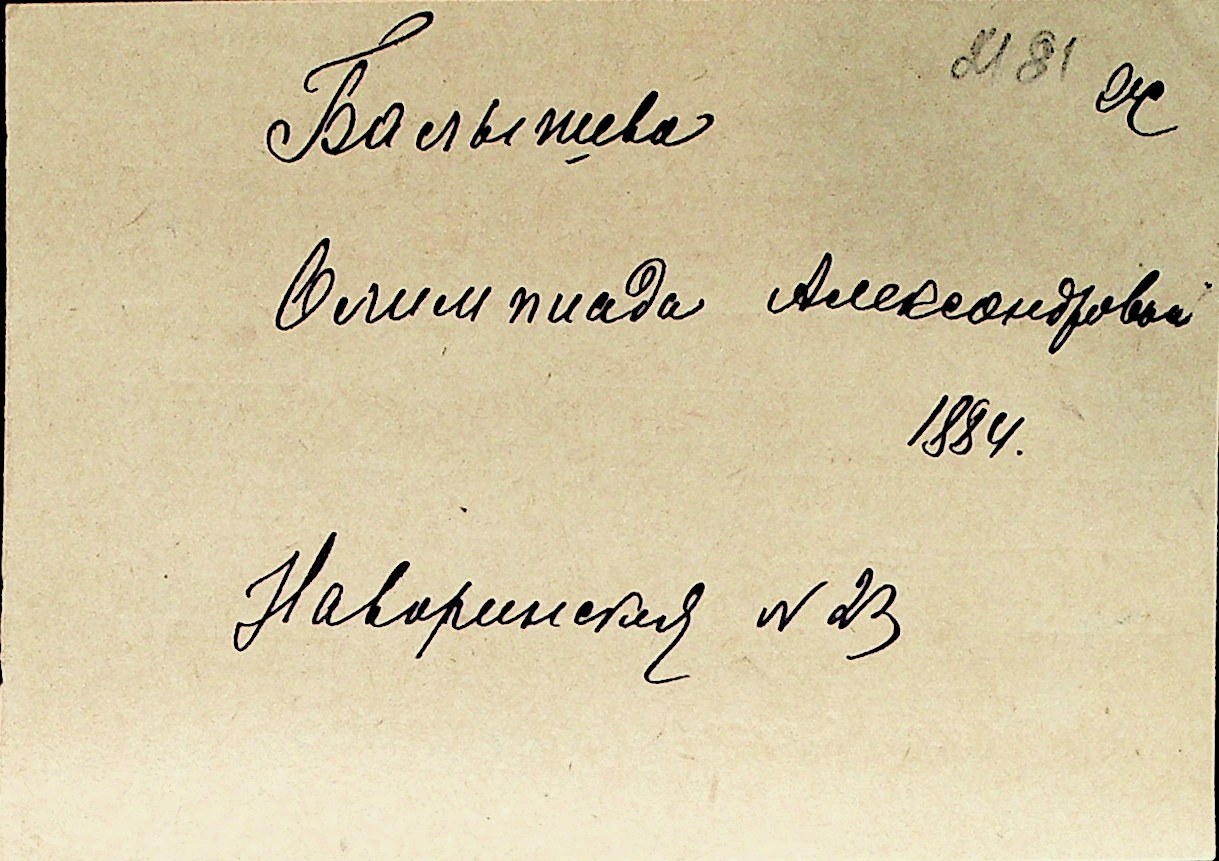 2181
Балышева
Олимпиада Александровна
1884.
Наваринская N 23